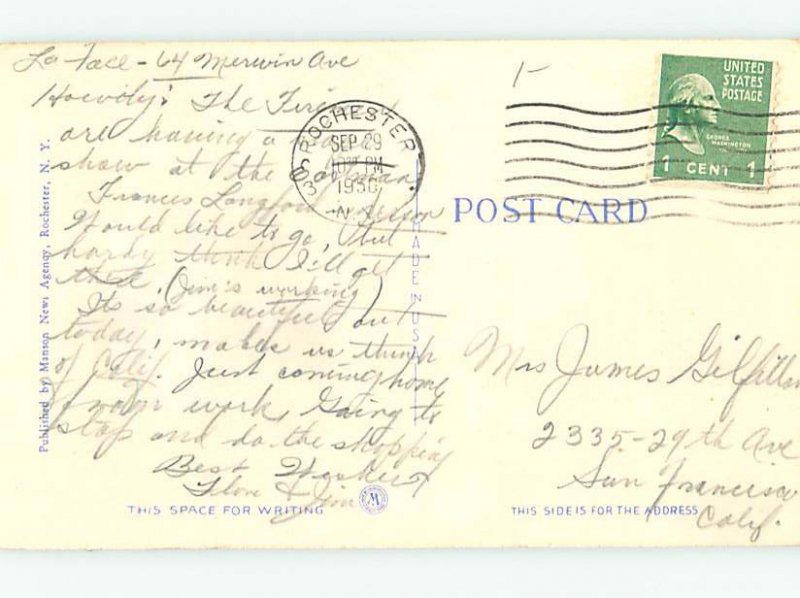 La Face - 64 Merwin Ave
Howdy! The
are having a
show at the
Frances Langford
Would like to go, but
hardly think I'll get
there. (Jim's working)
Its so beautiful out
today, makes us think
of Calif. Just coming home
from work, Going to
stop and do the shopping
Best Wishes
Flore & Jim
THIS SPACE FOR WRITING
Published by Manson News Agency, Rochester, N. Y.
MADE IN U.S.A.
ROCHESTER
SEP 29
PM
N.Y.
1-
UNITED
STATES
POSTAGE
GEORGE
WASHINGTON
1 CENT 1
POST CARD
Mrs James Gilfillan
2335-29th Ave
San Francisco
Calif.
THIS SIDE IS FOR THE ADDRESS